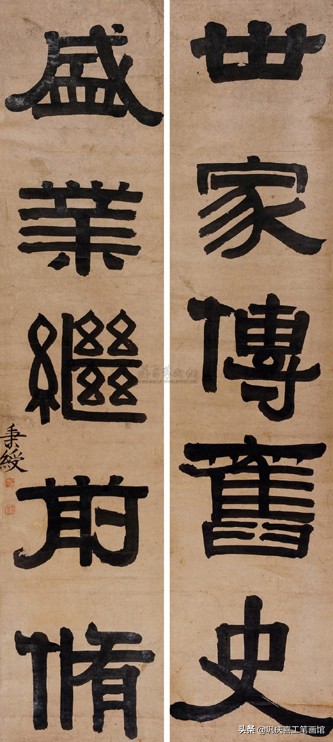 世家傳舊史
盛業繼前脩
秉綬
头条@巩庆喜工笔画馆